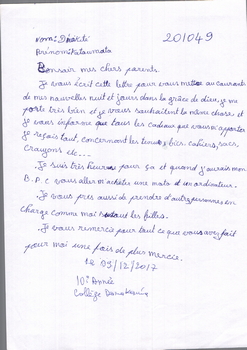 Nom: Diakité 201049
Prénom: Fatoumata
Bonsoir mes chers parents.
Je vous écrit cette lettre pour vous mettre au courants
de mes nouvelles nuit et jours dans la grâce de dieu, je me
porte très bien et je vous souhaitent la même chose et
je vous informe que tous les cadeaux que vous m'apportez
je reçois tout, concernant les tenues, bics, cahiers, sacs,
crayons etc...
Je suis très heureuse pour ça et quand j'aurais mon
B.P.C vous aller m'achetés une moto et un ordinateur.
Je vous pries aussi de prendre d'autres personnes en
charge comme moi surtout les filles.
Je vous remercie pour tout ce que vous avez fait
pour moi une fois de plus mercie.
Le 05/12/2017
10è Année
Collège